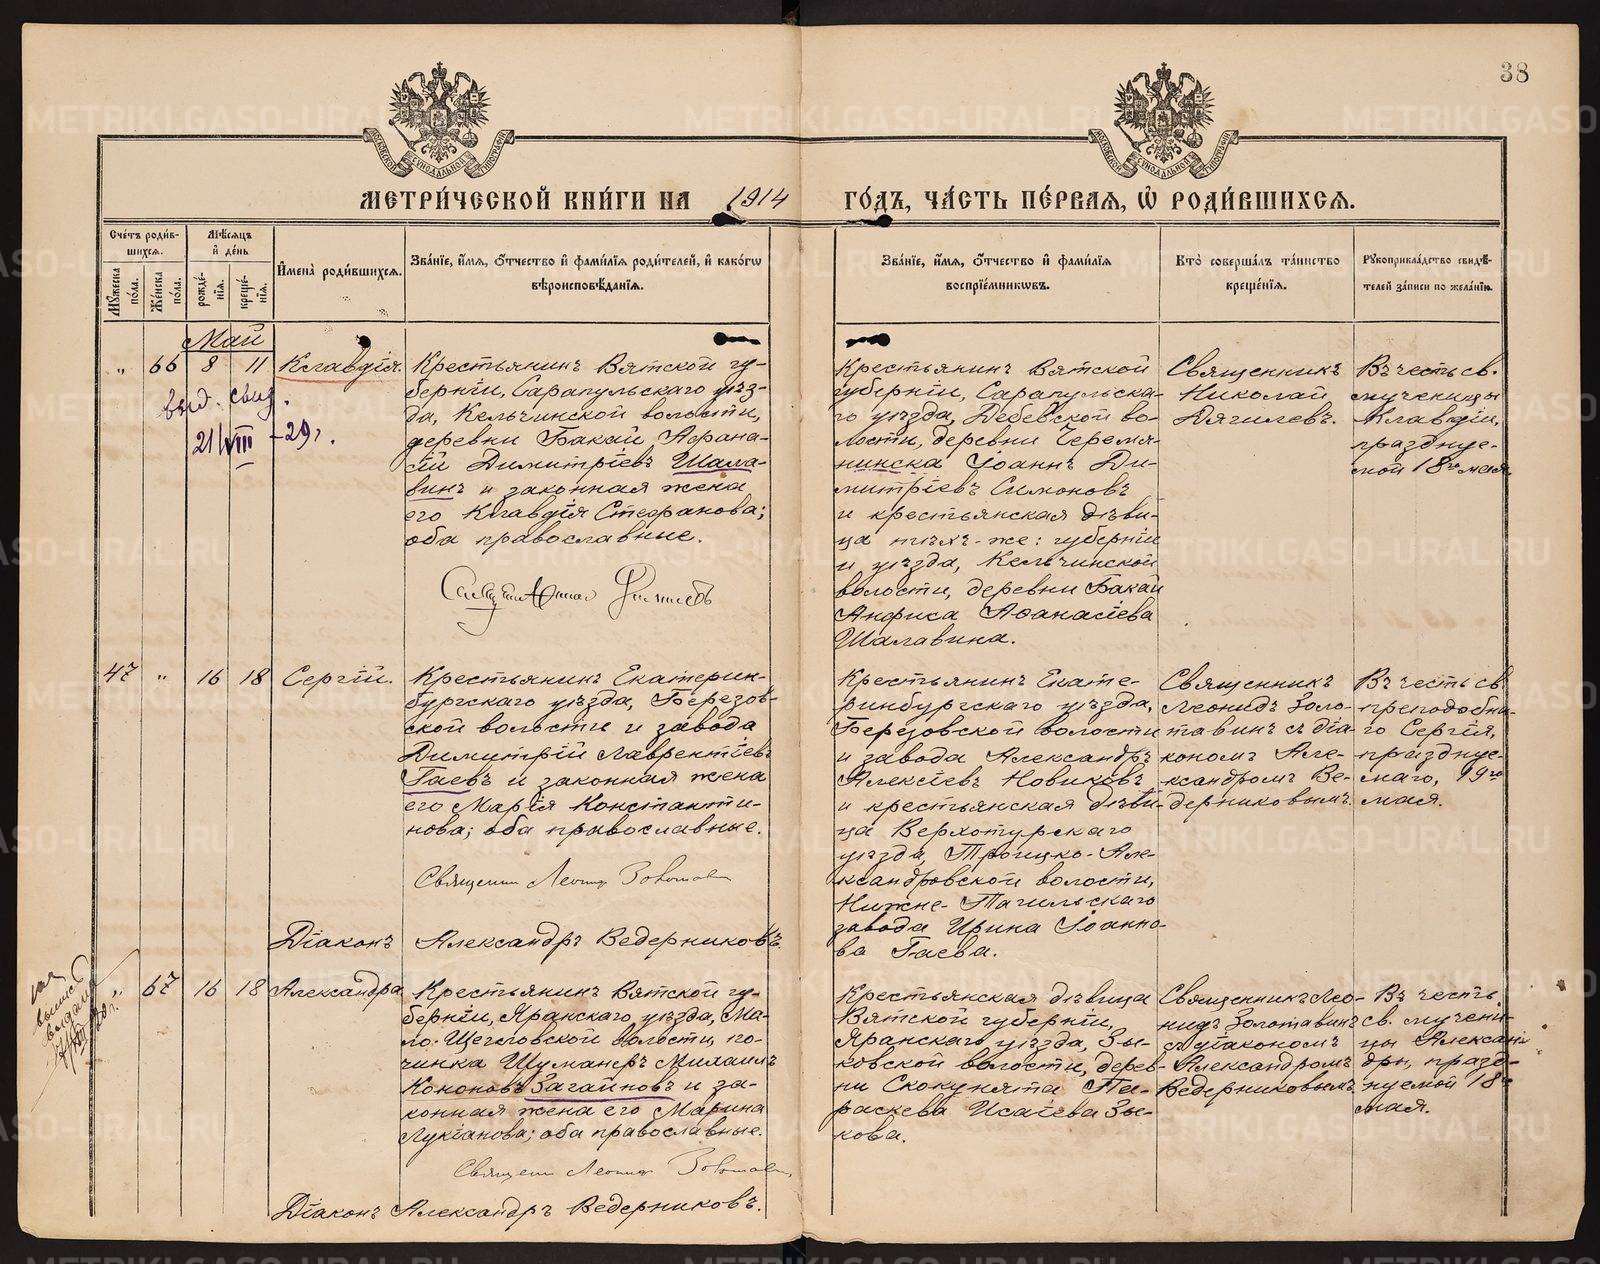 38
МЕТРИ́ЧЕСКОЙ КНИ́ГИ НА 1914 ГО́ДЪ, ЧА́СТЬ ПЕ́РВАЯ, Ѡ РОДИ́ВШИХСЯ.
Сче́тъ роди́в-
шихся.
Мѣ́сяцъ
и҆ де́нь
Мꙋ́жеска
по́ла.
Же́нска
по́ла.
рожде́-
нїя.
креще́-
нїя.
И҆мена̀ роди́вшихся.
Зва́нїе, и҆́мя, ѻ҆́тчество и҆ фами́лїя роди́телей, и҆ како́гѡ
вѣроисповѣ́данїя.
Зва́нїе, и҆́мя, ѻ҆́тчество и҆ фами́лїя
воспрїе́мникѡвъ.
Кто̀ соверша́лъ та́инство
креще́нїя.
Рꙋкоприкла́дство свидѣ́-
телей за́писи по жела́нїю.
Май
„ 66 8 11 Клавдія.
выд. свид.
21/VIII -29г.
Крестьянинъ Вятской гу-
берніи, Сарапульскаго уѣз-
да, Кельчинской волости,
деревни Бакай, Афана-
сій Димитріевъ Шала-
винъ и законная жена
его Клавдія Стефанова;
оба православные.
Крестьянинъ Вятской
губерніи, Сарапульска-
го уѣзда, Дебевской во-
лости, деревни Черемя-
нинска Іоаннъ Ди-
митріевъ Симоновъ
и крестьянская дѣви-
ца тѣхъ-же: губерніи
и уѣзда, Кельчинской
волости, деревни Бакай
Анфиса Афанасіева
Шалавина.
Священникъ
Николай
Дягилевъ.
Въ честь св.
мученицы
Клавдіи,
празднуе-
мой 18го мая.
47 „ 16 18 Сергій.
Крестьянинъ Екатерин-
бургскаго уѣзда, Березов-
ской волости и завода
Димитрій Лаврентіевъ
Гаевъ и законная жена
его Марія Константи-
нова; оба православные.
Священни Леонид Золотави
Діаконъ Александръ Ведерниковъ.
Крестьянинъ Екате-
ринбургскаго уѣзда,
Березовской волости
и завода Александръ
Алексіевъ Новиковъ
и крестьянская дѣви-
ца Верхотурскаго
уѣзда, Троицко-Але-
ксандровской волости,
Нижне-Тагильскаго
завода Ирина Іоанно-
ва Гаева.
Священникъ
Леонидъ Золо-
тавинъ съ діа-
кономъ Але-
ксандромъ Ве-
дерниковымъ.
Въ честь св.
преподобна-
го Сергія,
празднуе-
маго, 19го
мая.
выпись
выдана
„ 67 16 18 Александра
Крестьянинъ Вятской гу-
берніи, Яранскаго уѣзда, Ма-
ло-Щегловской волости, по-
чинка Шуманеръ Михаилъ
Кононовъ Загайновъ и за-
конная жена его Марина
Лукіанова; оба православные.
Священи Леонид Золотави
Діаконъ Александръ Ведерниковъ.
Крестьянская дѣвица
Вятской губерніи,
Яранскаго уѣзда, Зы-
ковской волости, дерев-
ни Скокунята Па-
раскева Исаіева Зы-
кова.
Священникъ Лео-
нидъ Золотавинъ
съ діакономъ
Александромъ
Ведерниковымъ.
Въ честь
св. мучени-
цы Алексан-
дры, празд-
нуемой 18го
мая.
METRIKI.GASO-URAL.RU